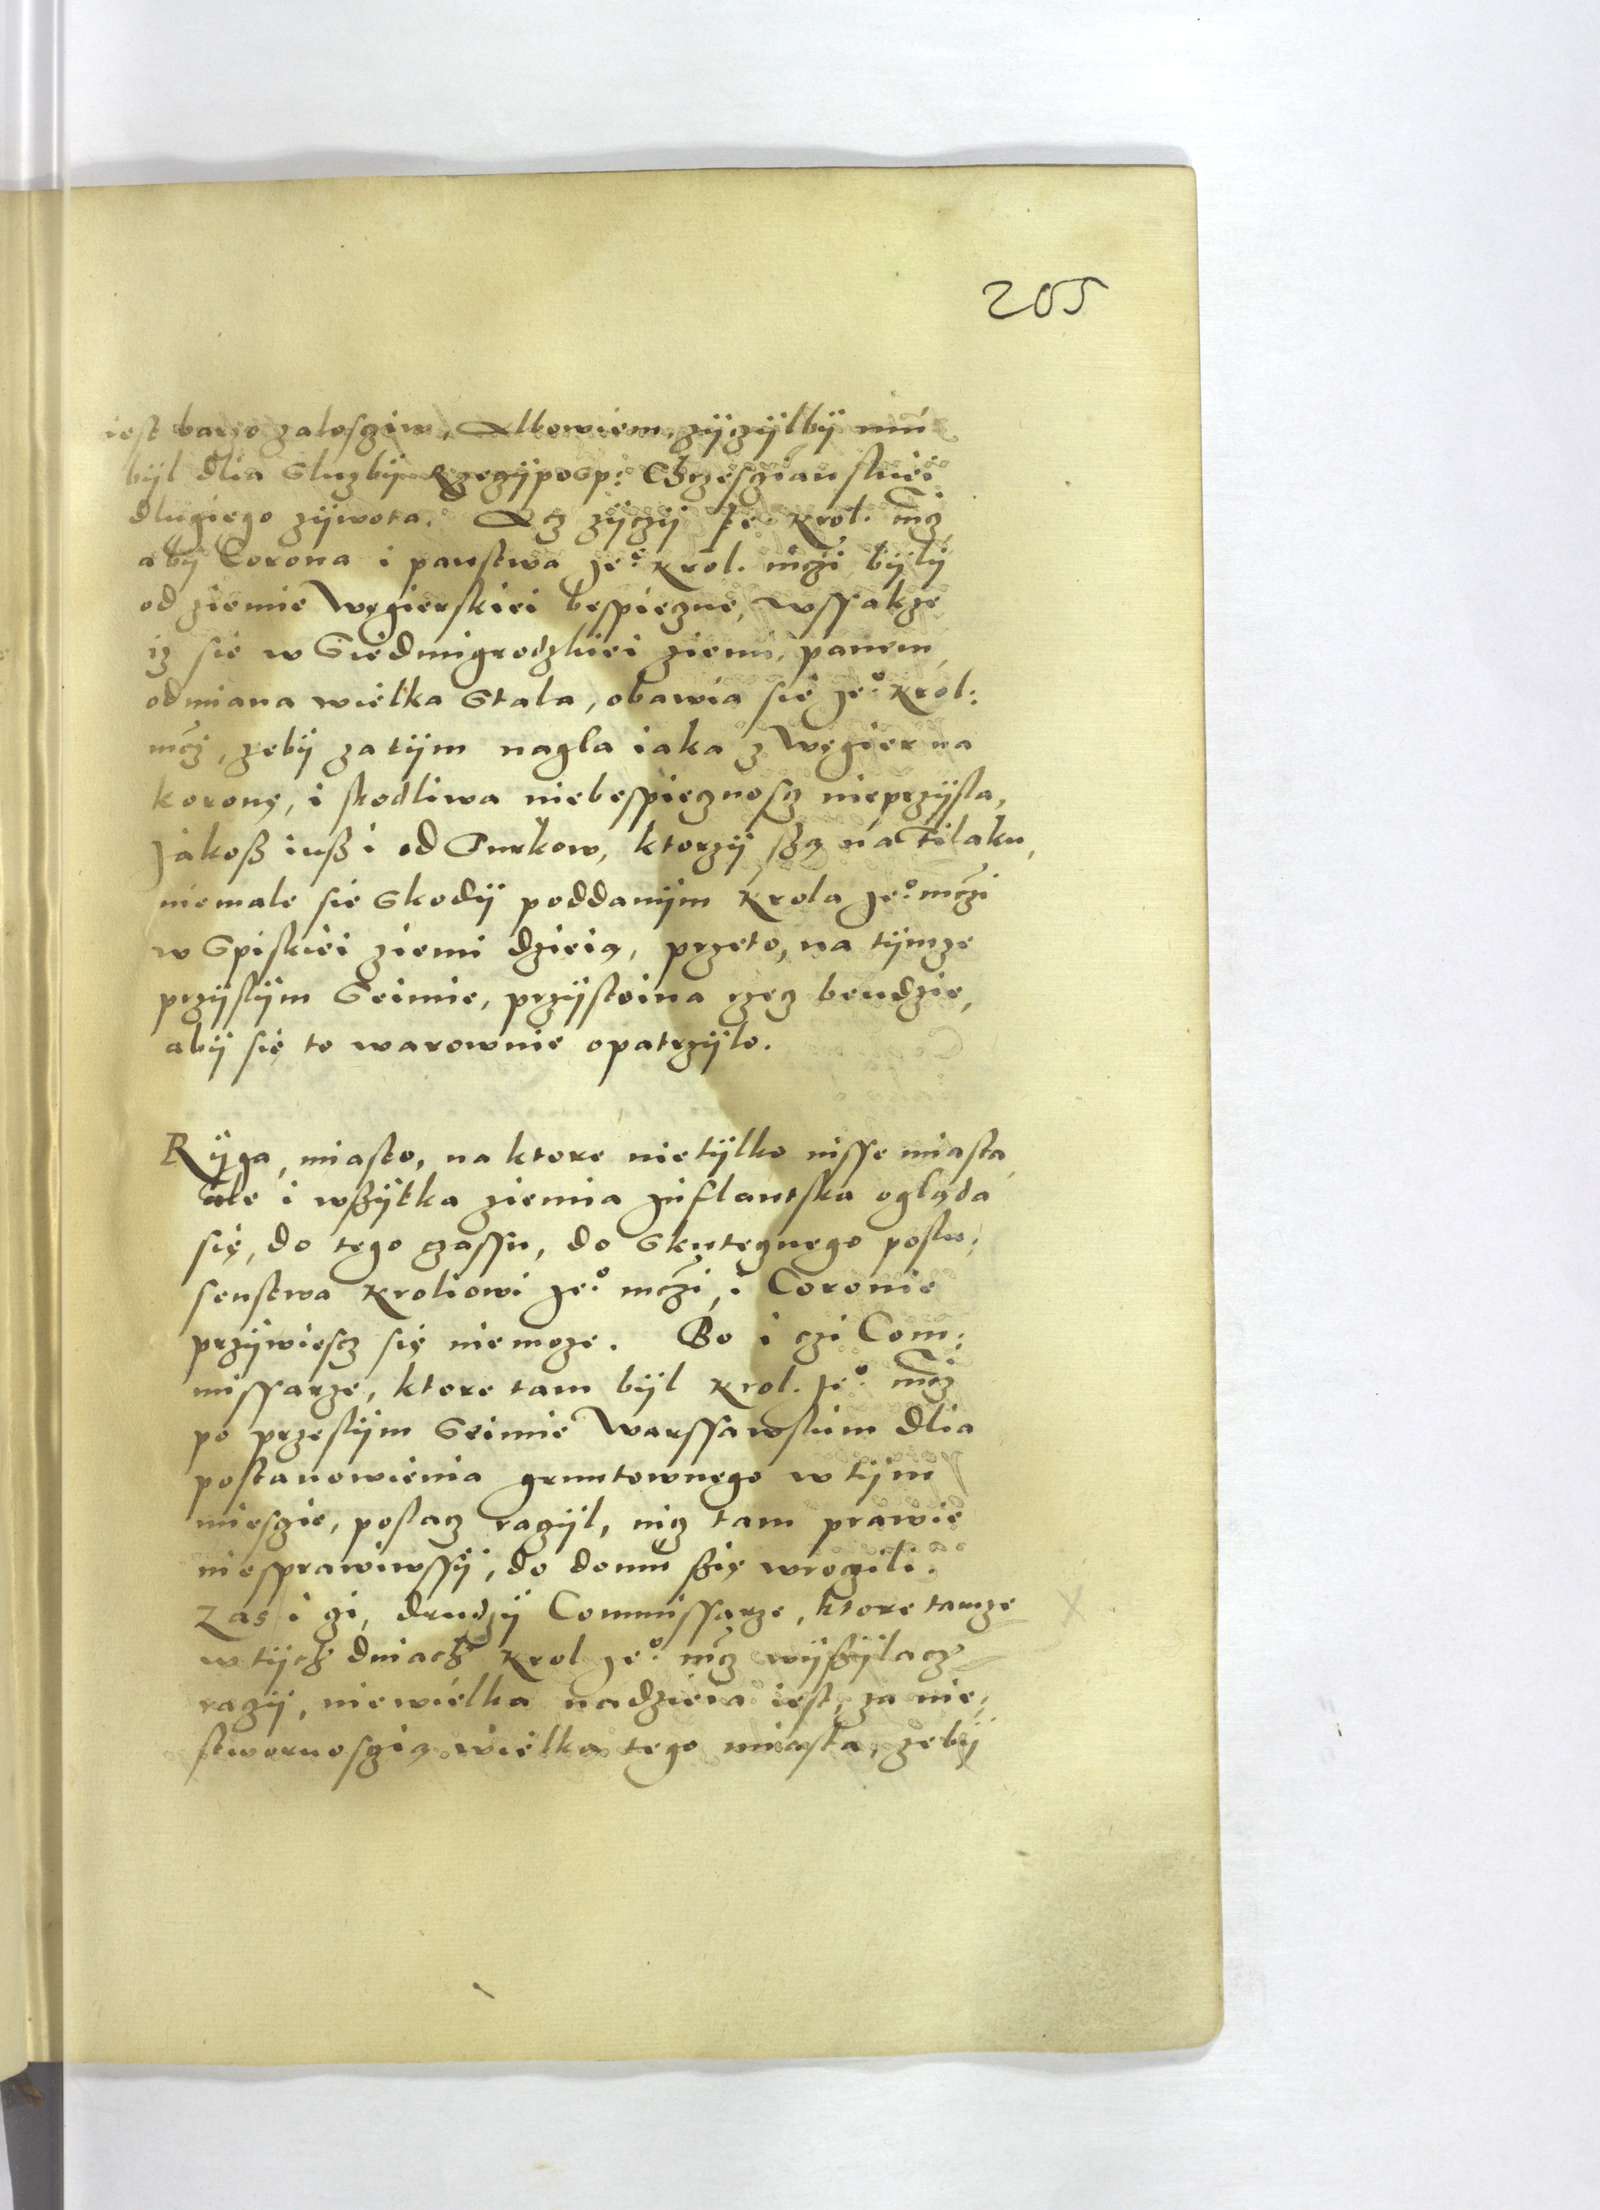 205
iest barzo zalosziw, Albowiem, zÿczÿlbÿ mu
bÿl dlia Sluzbÿ RzeczÿpoSp: Chrzeszianskiei
dlugiego zÿwota. Acz zÿczÿ Je° Krol. mcz
abÿ Corona i panstwa Je° Krol. mczi bÿlÿ
od ziemie Węgierskiei bespieczne, wssakze
iz sie w Siedmigrodzkiei ziemi, panem,
odmiana wielka Stala, obawia się Je° Krol:
mcz, zebÿ za tÿm nagla iaka z Węgier na
koronę, i skodliwa niebespiecznoscz nieprzÿsla,
Jakoß iuß i od Turkow, ktorzÿ sßą na Filaku,
niemale się Skodÿ poddanÿm Krola Je° mczi
w Spiskiei ziemi dzieią, przeto, na tÿmze
przÿslÿm Seimie, przÿstoina rzecz bendzie,
abÿ się to warownie opatrzÿlo.
Rÿga, miasto, na ktore nietÿlko nisse miasta
ale i wßÿtka ziemia Inflantska ogląda
się, do tego czassu, do Skutęcznego poslu:
senstwa Kroliowi Je° mczi, i Coronie
przÿwiescz się niemoze. Bo i czi Com:
missarze, ktore tam bÿl Krol. Je° mcz
po przeslÿm Seimie Warssawskim dlia
postanowienia gruntownego w tÿm
miesczie, poslacz raczÿl, nicz tam prawie
niesprawiwssÿ, do domu ßię wroczili.
Zas i czi, drudzÿ Commissarze, ktore tamze
w tÿch dniach Krol Je° mcz wÿßÿlacz
raczÿ, niewielka nadzieia iest, za nie:
stwornosczią wielką tego miasta, zebÿ